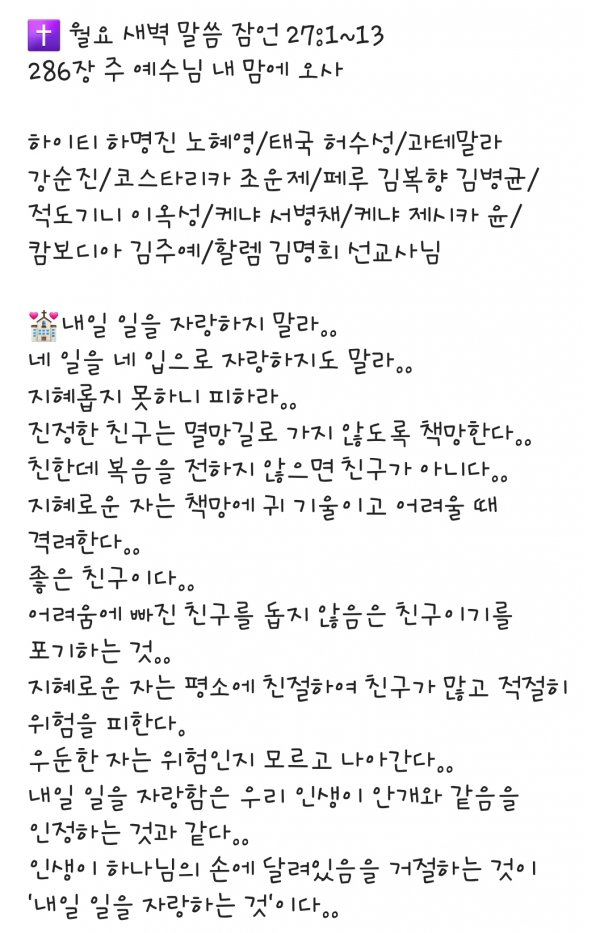 ✝️ 월요 새벽 말씀 잠언 27:1~13
286장 주 예수님 내 맘에 오사
하이티 하명진 노혜영/태국 허수성/과테말라
강순진/코스타리카 조운제/페루 김복향 김병균/
적도기니 이옥성/케냐 서병채/케냐 제시카 윤/
캄보디아 김주예/할렘 김명희 선교사님
💒내일 일을 자랑하지 말라..
네 일을 네 입으로 자랑하지도 말라..
지혜롭지 못하니 피하라..
진정한 친구는 멸망길로 가지 않도록 책망한다..
친한데 복음을 전하지 않으면 친구가 아니다..
지혜로운 자는 책망에 귀 기울이고 어려울 때
격려한다..
좋은 친구이다..
어려움에 빠진 친구를 돕지 않음은 친구이기를
포기하는 것..
지혜로운 자는 평소에 친절하여 친구가 많고 적절히
위험을 피한다.
우둔한 자는 위험인지 모르고 나아간다..
내일 일을 자랑함은 우리 인생이 안개와 같음을
인정하는 것과 같다..
인생이 하나님의 손에 달려있음을 거절하는 것이
'내일 일을 자랑하는 것'이다..